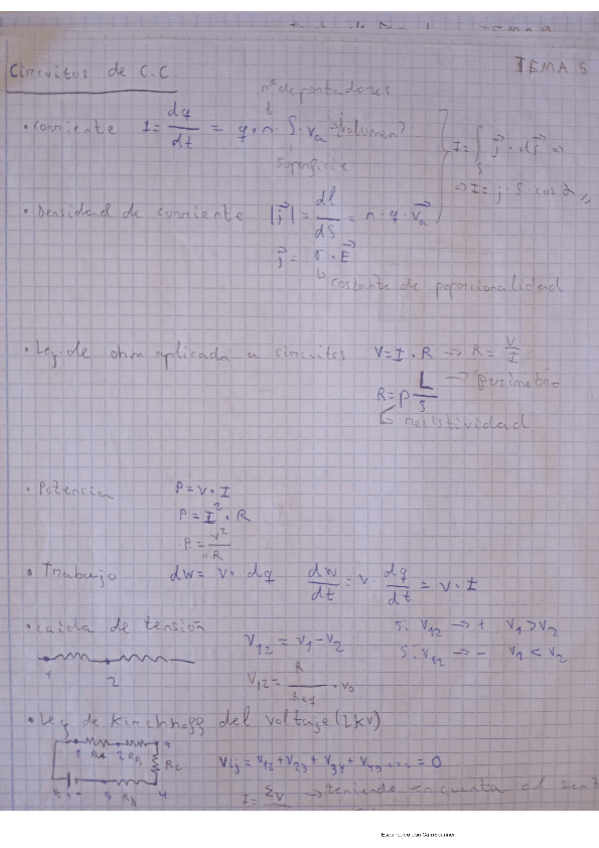 TEMA 5
Circuitos de C.C
nº de portadores
• Corriente I = dq/dt = q·n·S·va → ¿Volumen?
Superficie
I = ∫s j⃗ · dS⃗ ⇒
⇒ I = j · S · cos α
• Densidad de corriente |j⃗| = dI/dS = n · q · v⃗a
j⃗ = σ · E⃗
↳ Costante de poporcionalidad
• Ley de ohm aplicada a circuitos V = I · R → R = V/I
R = ρ L/S → perimetro
↳ resistividad
• Potencia P = V · I
P = I² · R
P = V²/R
• Trabajo dw = V · dq dw/dt = V · dq/dt = V · I
• Caida de tensión V12 = V1 - V2 Si V12 → + V1 > V2
Si V12 → - V1 < V2
1 2 V12 = R/Req · V0
• Ley de Kirchhoff del voltaje (LKV)
1 RA 2 RB 3
RC
5 RD 4
Vij = V12 + V23 + V34 + V45 ... = 0
I = ΣV → teniendo en cuenta el sent
Escaneado con CamScanner